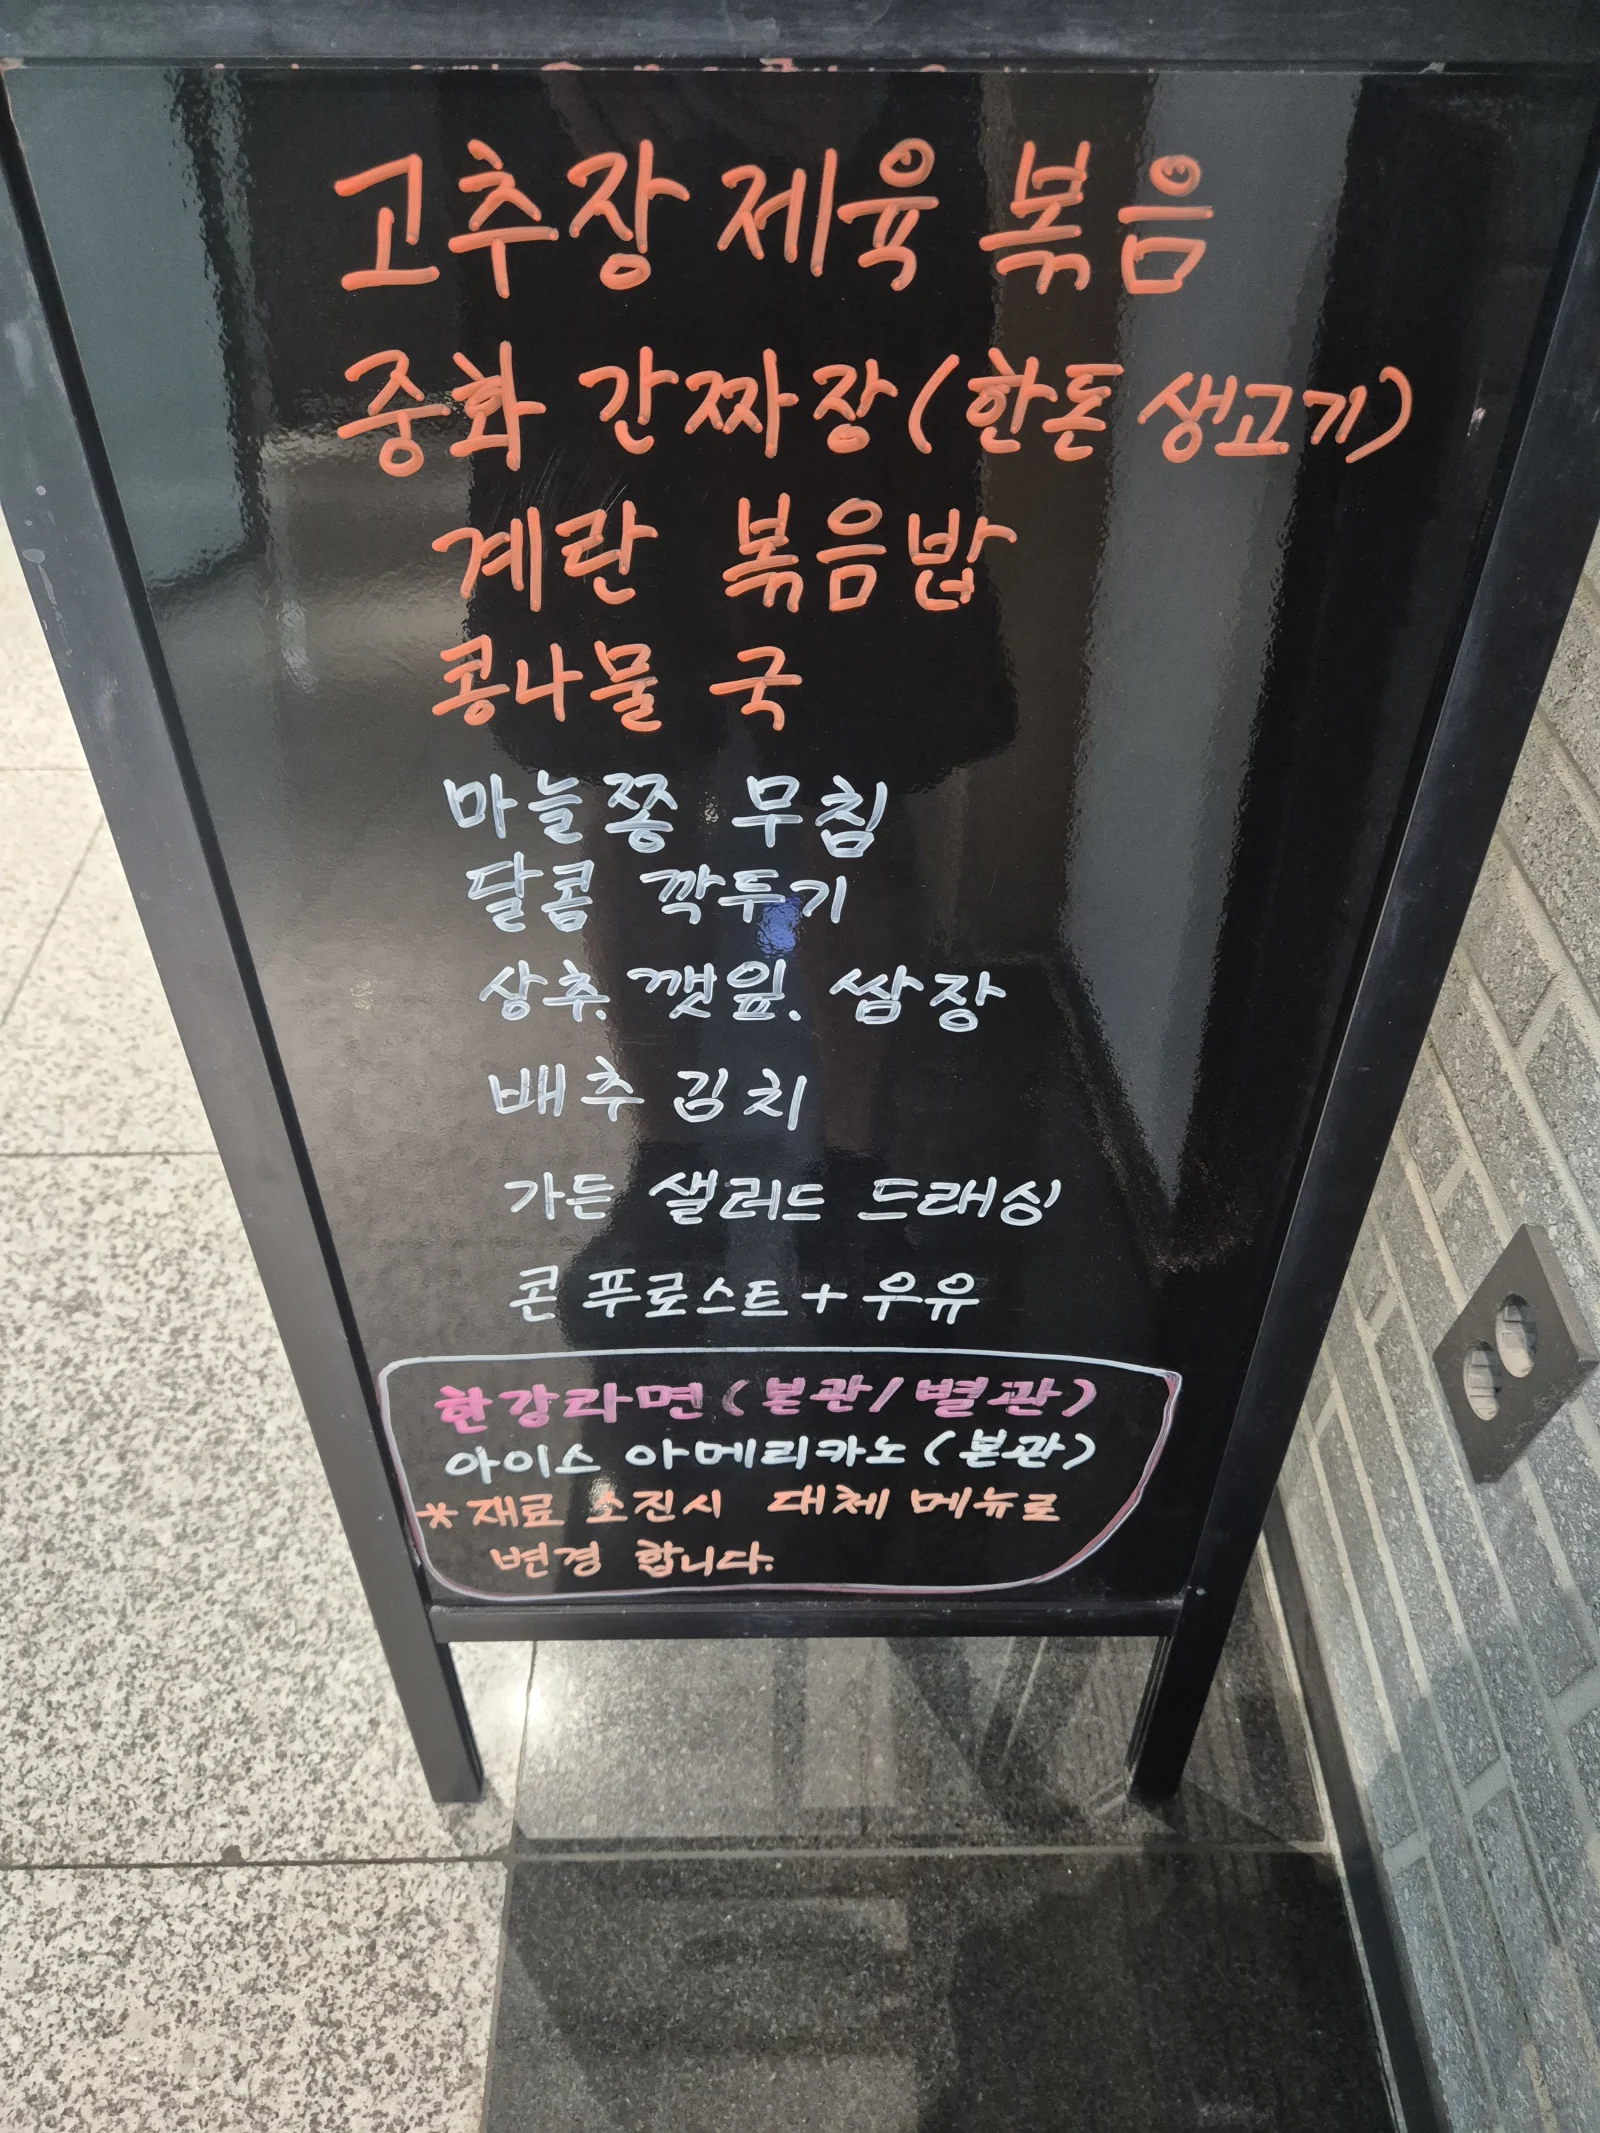 고추장 제육 볶음
중화 간짜장(한돈 생고기)
계란 볶음밥
콩나물 국
마늘쫑 무침
달콤 깍두기
상추. 깻잎. 쌈장
배추 김치
가든 샐러드 드래싱
콘 푸로스트+우유
한강라면(본관/별관)
아이스 아메리카노(본관)
*재료 소진시 대체 메뉴로
변경 합니다.